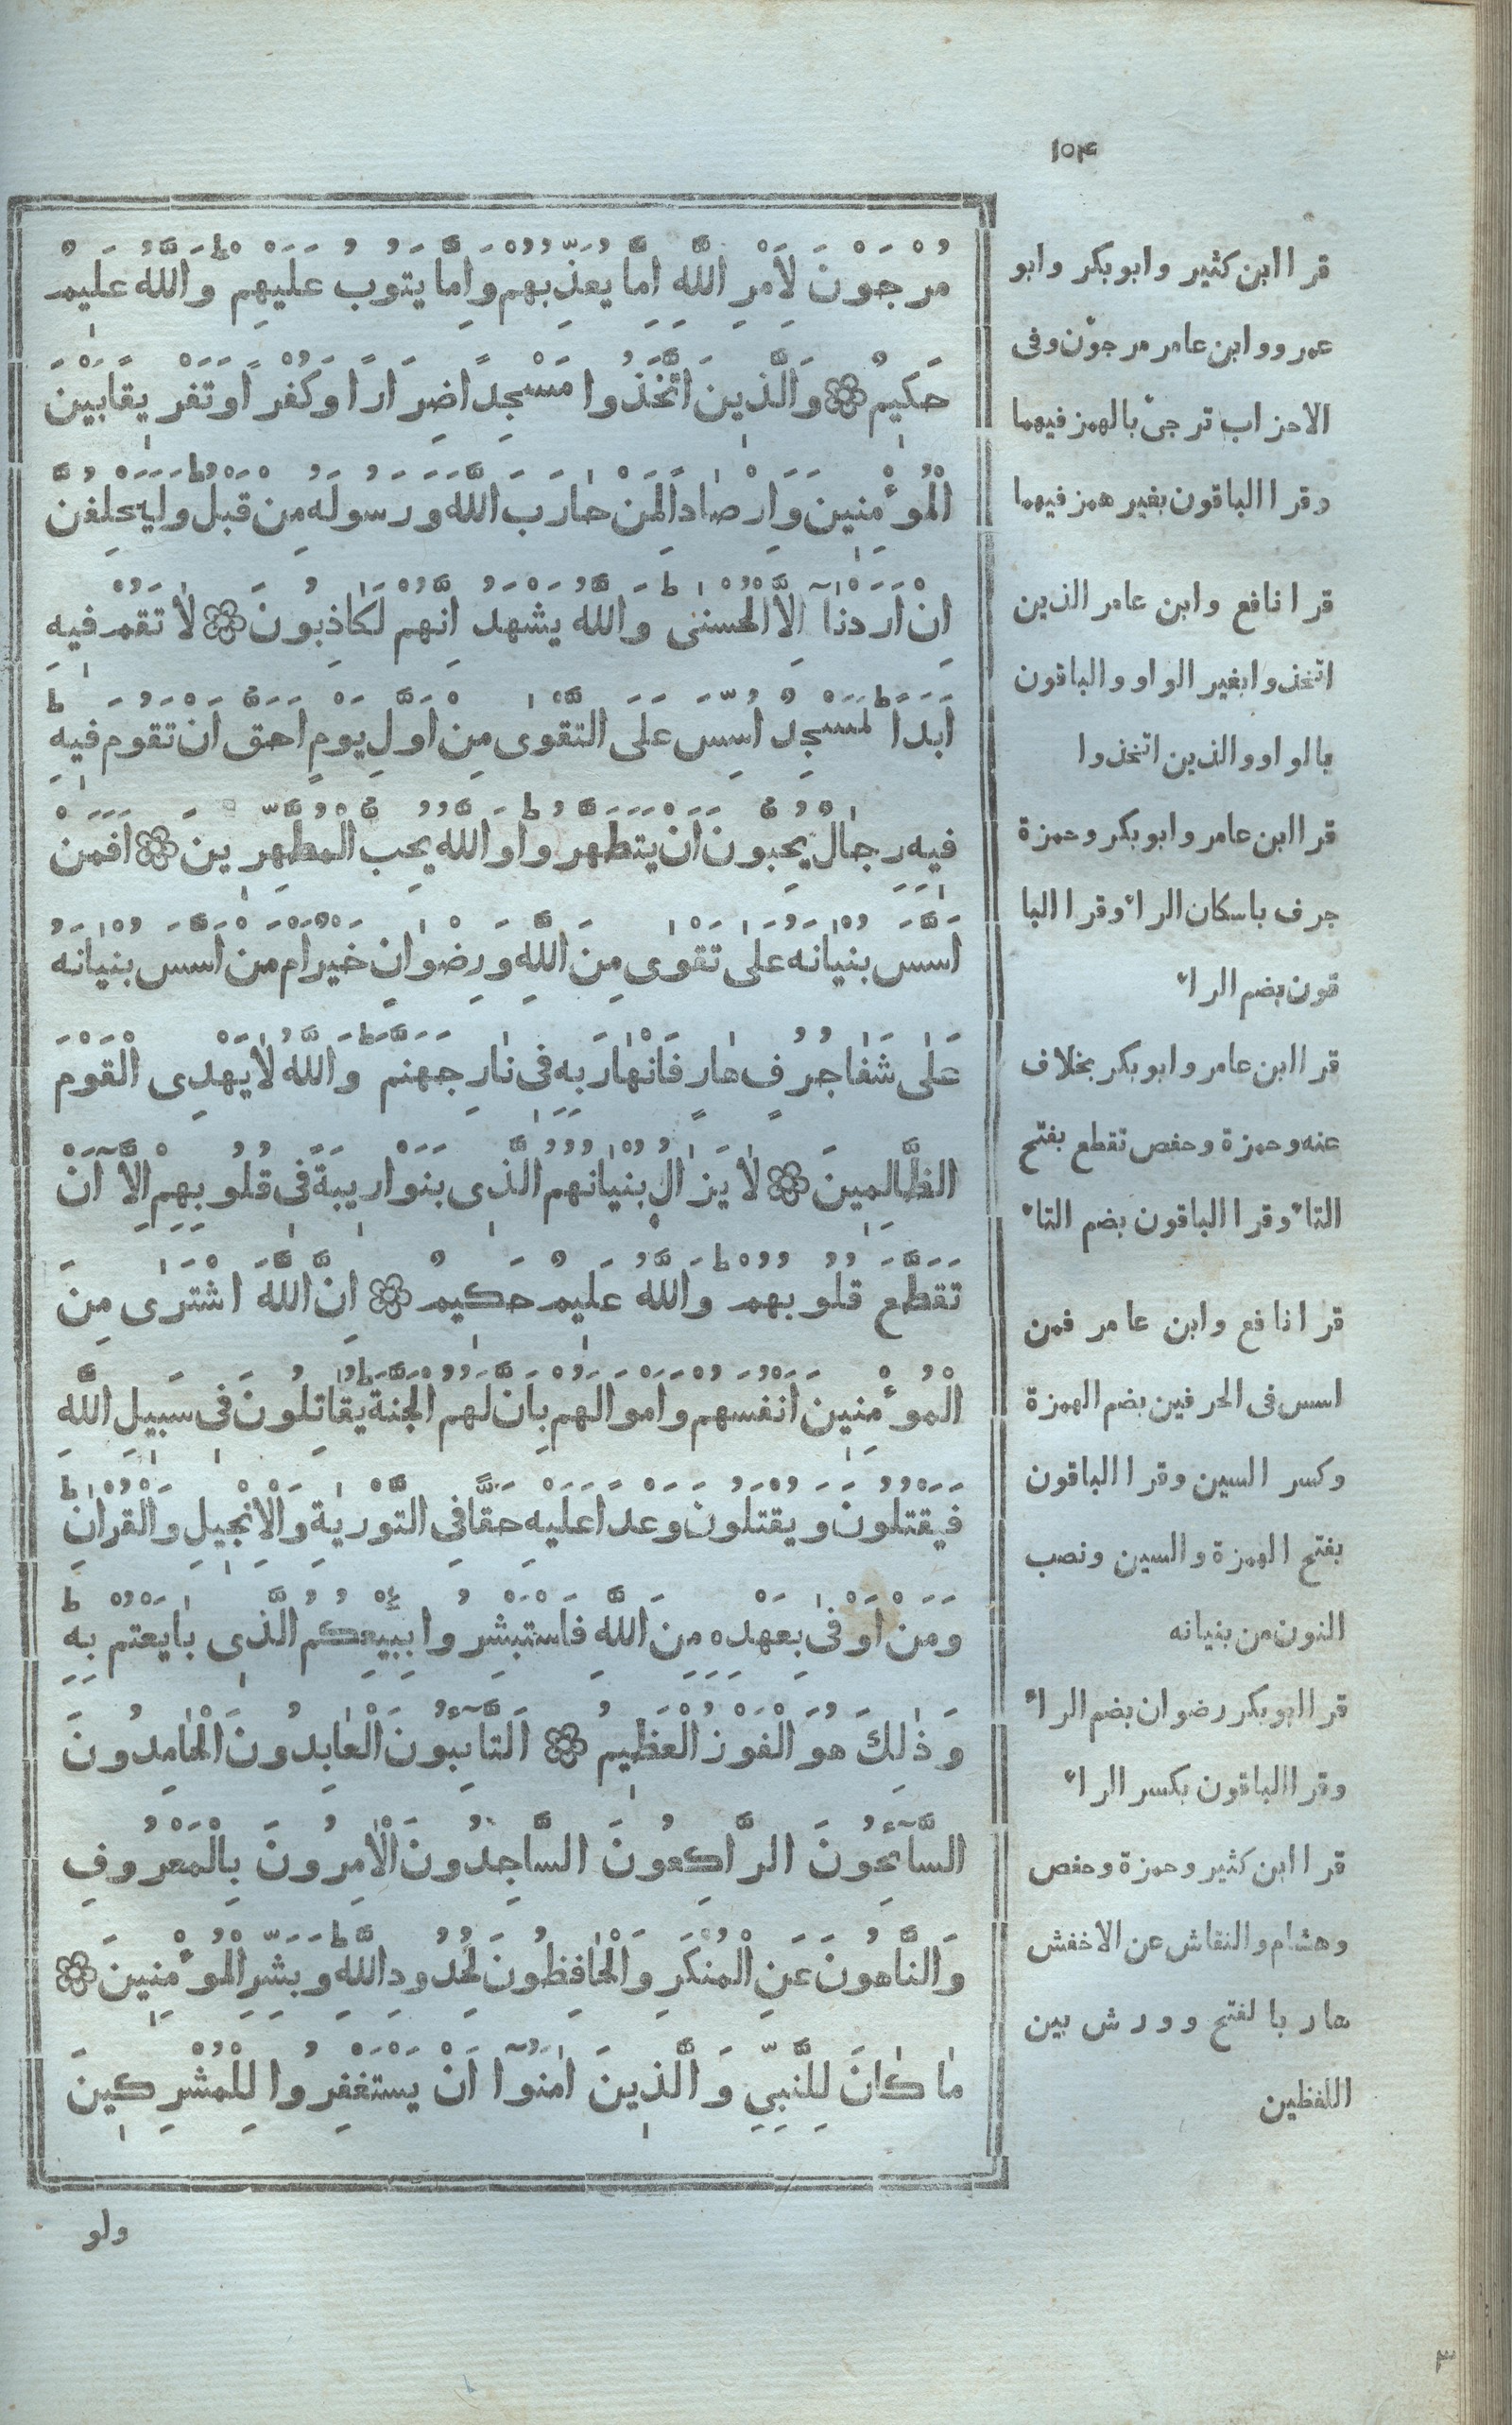 ١٥۴
مُرْجَوْنَ لِاَمْرِ اللَّهِ اِمَّا يُعَذِّبُهُمْ وَاِمَّا يَتُوبُ عَلَيْهِمْ ط وَاللَّهُ عَلِيمٌ
حَكِيمٌ ۞ وَالَّذِينَ اتَّخَذُوا مَسْجِدًا ضِرَارًا وَكُفْرًا وَتَفْرِيقًا بَيْنَ
الْمُؤْمِنِينَ وَاِرْصَادًا لِمَنْ حَارَبَ اللَّهَ وَرَسُولَهُ مِنْ قَبْلُ ط وَلَيَحْلِفُنَّ
اِنْ اَرَدْنَآ اِلَّا الْحُسْنٰى ط وَاللَّهُ يَشْهَدُ اِنَّهُمْ لَكَاذِبُونَ ۞ لَا تَقُمْ فِيهِ
اَبَدًا ط لَمَسْجِدٌ اُسِّسَ عَلَى التَّقْوٰى مِنْ اَوَّلِ يَوْمٍ اَحَقُّ اَنْ تَقُومَ فِيهِ ط
فِيهِ رِجَالٌ يُحِبُّونَ اَنْ يَتَطَهَّرُوا ط وَاللَّهُ يُحِبُّ الْمُطَّهِّرِينَ ۞ اَفَمَنْ
اَسَّسَ بُنْيَانَهُ عَلٰى تَقْوٰى مِنَ اللَّهِ وَرِضْوَانٍ خَيْرٌ اَمْ مَنْ اَسَّسَ بُنْيَانَهُ
عَلٰى شَفَا جُرُفٍ هَارٍ فَانْهَارَ بِهِ فِى نَارِ جَهَنَّمَ ط وَاللَّهُ لَا يَهْدِى الْقَوْمَ
الظَّالِمِينَ ۞ لَا يَزَالُ بُنْيَانُهُمُ الَّذِى بَنَوْا رِيبَةً فِى قُلُوبِهِمْ اِلَّآ اَنْ
تَقَطَّعَ قُلُوبُهُمْ ط وَاللَّهُ عَلِيمٌ حَكِيمٌ ۞ اِنَّ اللَّهَ اشْتَرٰى مِنَ
الْمُؤْمِنِينَ اَنْفُسَهُمْ وَاَمْوَالَهُمْ بِاَنَّ لَهُمُ الْجَنَّةَ ط يُقَاتِلُونَ فِى سَبِيلِ اللَّهِ
فَيَقْتُلُونَ وَيُقْتَلُونَ وَعْدًا عَلَيْهِ حَقًّا فِى التَّوْرٰيةِ وَالْاِنْجِيلِ وَالْقُرْاٰنِ ط
وَمَنْ اَوْفٰى بِعَهْدِهِ مِنَ اللَّهِ فَاسْتَبْشِرُوا بِبَيْعِكُمُ الَّذِى بَايَعْتُمْ بِهِ ط
وَذٰلِكَ هُوَ الْفَوْزُ الْعَظِيمُ ۞ اَلتَّآئِبُونَ الْعَابِدُونَ الْحَامِدُونَ
السَّآئِحُونَ الرَّاكِعُونَ السَّاجِدُونَ الْاٰمِرُونَ بِالْمَعْرُوفِ
وَالنَّاهُونَ عَنِ الْمُنْكَرِ وَالْحَافِظُونَ لِحُدُودِ اللَّهِ ط وَبَشِّرِ الْمُؤْمِنِينَ ۞
مَا كَانَ لِلنَّبِيِّ وَالَّذِينَ اٰمَنُوٓا اَنْ يَسْتَغْفِرُوا لِلْمُشْرِكِينَ
ولو
قرا ابن كثير وابوبكر وابو
عمرو وابن عامر مرجؤن وفى
الاحزاب ترجئ بالهمز فيهما
وقرا الباقون بغير همز فيهما
قرا نافع وابن عامر الذين
اتخذوا بغير الواو والباقون
بالواو والذين اتخذوا
قرا ابن عامر وابوبكر وحمزة
جرف باسكان الراء وقرا البا
قون بضم الراء
قرا ابن عامر وابوبكر بخلاف
عنه وحمزة وحفص تقطع بفتح
التاء وقرا الباقون بضم التاء
قرا نافع وابن عامر فمن
اسس فى الحرفين بضم الهمزة
وكسر السين وقرا الباقون
بفتح الهمزة والسين ونصب
النون من بنيانه
قرا ابوبكر رضوان بضم الراء
وقرا الباقون بكسر الراء
قرا ابن كثير وحمزة وحفص
وهشام والنقاش عن الاخفش
هار بالفتح وورش بين
اللفظين
٣